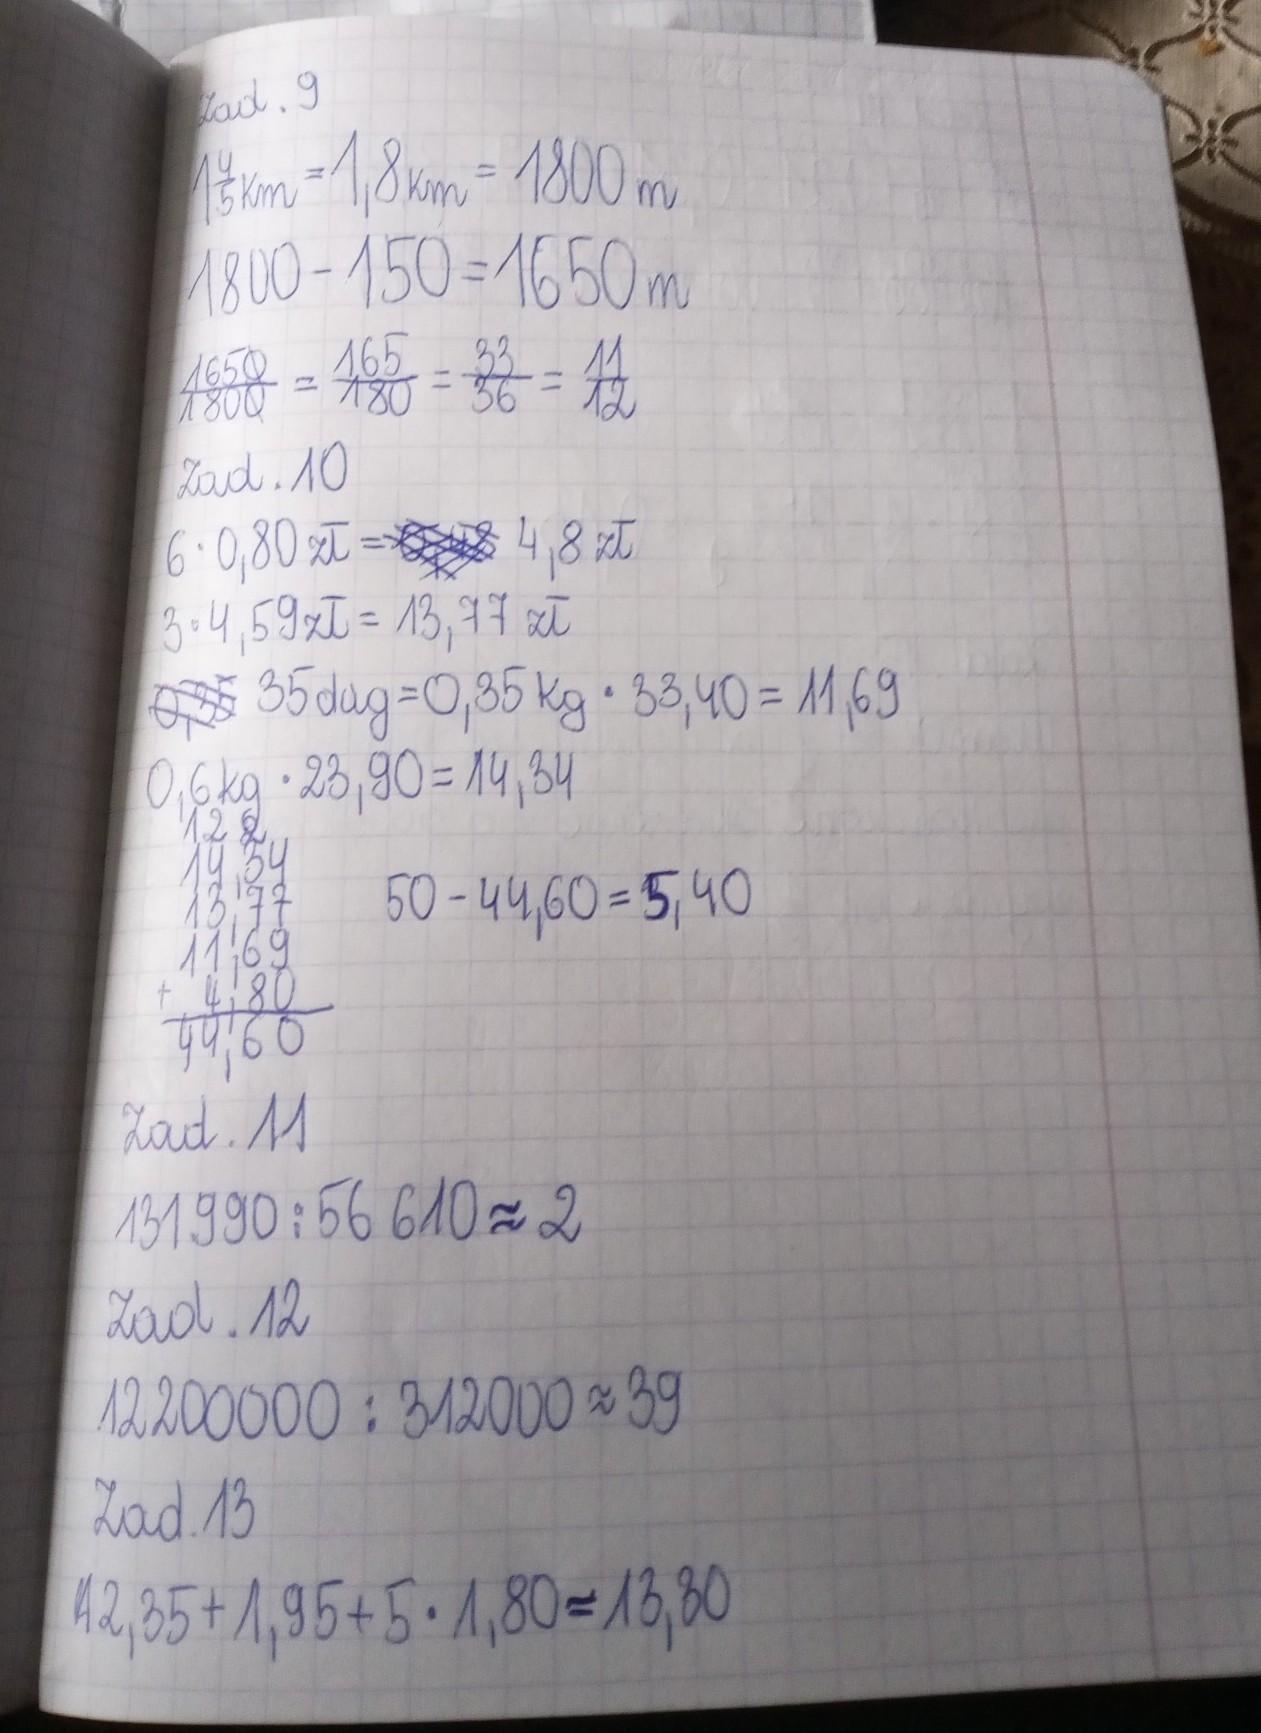 Zad. 9
1 4/5 km = 1,8 km = 1800 m
1800 - 150 = 1650 m
1650/1800 = 165/180 = 33/36 = 11/12
Zad. 10
6 · 0,80 zł = 4,8 zł
3 · 4,59 zł = 13,77 zł
35 dag = 0,35 kg · 33,40 = 11,69
0,6 kg · 23,90 = 14,34
12 2
14,34
13,77
50 - 44,60 = 5,40
11,69
+ 4,80
44,60
Zad. 11
131990 : 56 610 ≈ 2
Zad. 12
12200000 : 312000 ≈ 39
Zad. 13
2,35 + 1,95 + 5 · 1,80 = 13,30